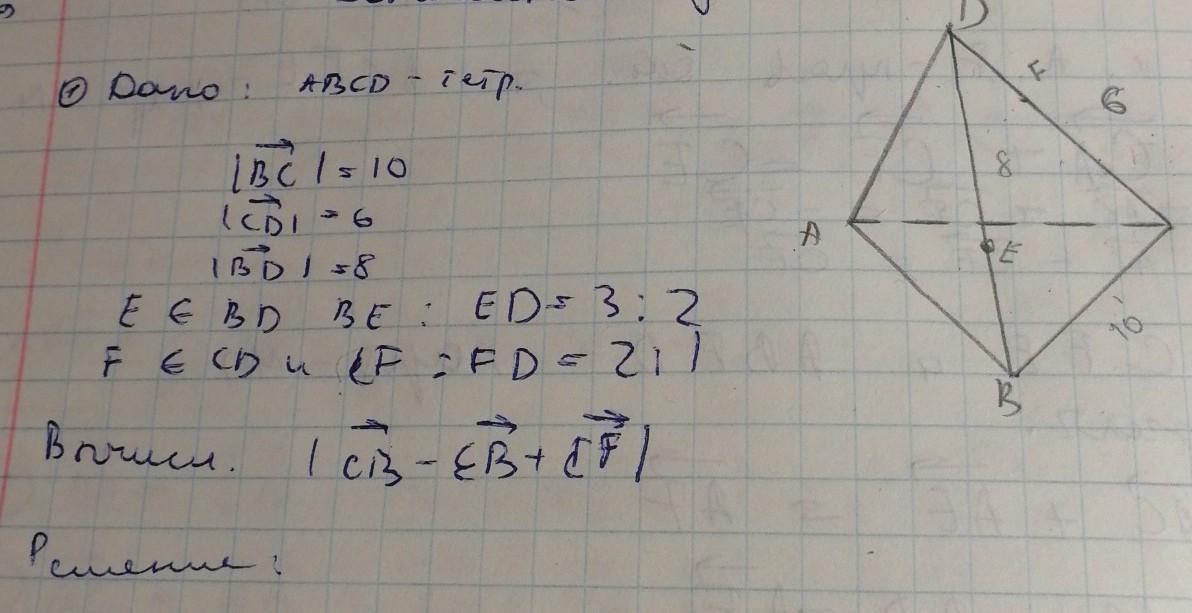 ① Дано: ABCD - тетр.
|BC| = 10
|CD| = 6
|BD| = 8
E ∈ BD BE : ED = 3 : 2
F ∈ CD и CF : FD = 2 : 1
Вычисл. |CB - EB + CF|
Решение:
D
F
6
8
A
E
10
B